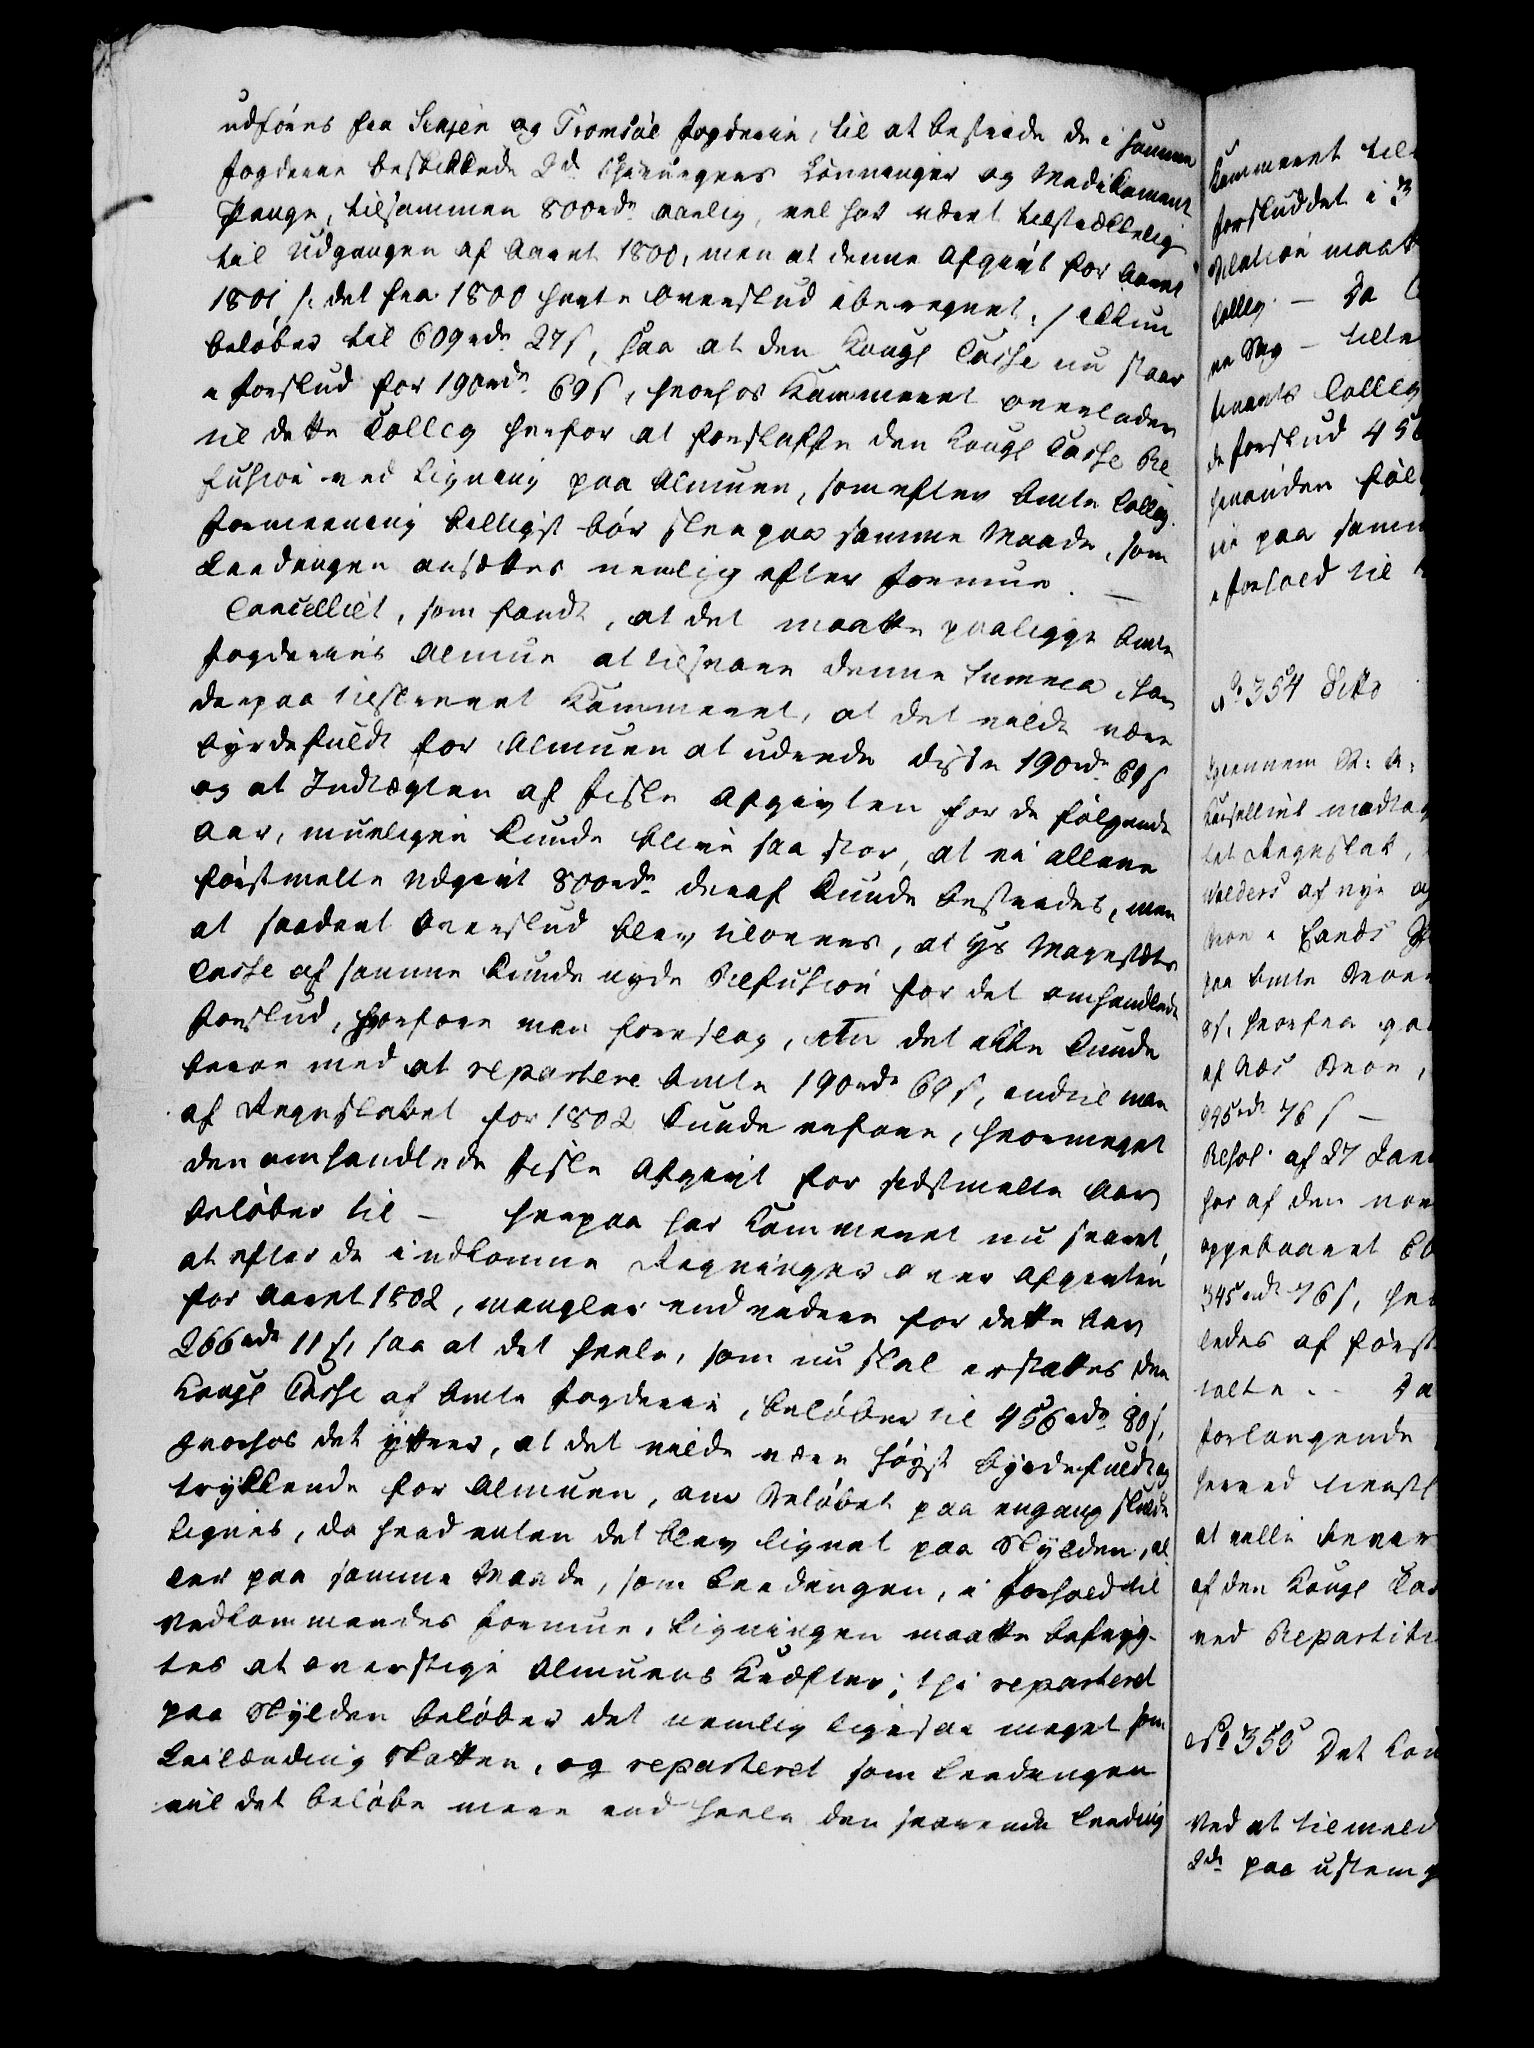 udføres fra Senjen og Tromsøe Fogderie, til at bestride de i samme
Fogderie beskikkede 2de Chirurgers Lønninger og Medicament
Penge, tilsammen 800rdr aarlig, vel har været tilstrækkelig
til Udgangen af Aaret 1800, men at denne Afgivt for Aaret
1801, /: det fra 1800 havte Overskud iberegnet :/ ikkun
beløber til 609rdr 27s, saa at den Kongl Casse nu staar
i Forskud for 190rdr 69s, hvorhos Kammeret overlader
til dette Colleg herfor at forskaffe den Kongl Casse Re-
fusion ved Ligning paa Almuen, som efter bemte Collg.
Formeening billigst bør skee paa samme Maade, som
Leedingen ansættes nemlig efter Formue. —
Cancelliet, som fandt, at det maatte paaligge bemte
Fogderies Almue at tilsvare denne Summa, har
derpaa tilskrevet Kammeret, at det vilde være
byrdefuldt for Almuen at udrede disse 190rdr 69s
og at Indtægten af Fiske Afgivten for de følgende
Aar, mueligen kunde blive saa stor, at ei allene
førstmelte Udgivt 800rdr deraf kunde bestrides, men
at saadant Overskud blev tilovers, at Hs Majestæts
Casse af samme kunde nyde Refusion for det omhandlede
Forskud, hvorfore man foreslog, om det ikke kunde
beroe med at repartere bemte 190rdr 69s, indtil man
af Regnskabet for 1802 kunde erfare, hvormeget
den omhandlede Fiske Afgivt for sidstmelte Aar
beløber til — herpaa har Kammeret nu svaret,
at efter de indkomne Regninger over Afgivten
for Aaret 1802, mangler endvidere for dette Aar
266rdr 11s, saa at det heele, som nu skal erstattes den
Kongl Casse af bemte Fogderie, beløber til 456rdr 80s,
hvorhos det yttrer, at det vilde være høist byrdefuldt og
trykkende for Almuen, om Beløbet paa engang skulde
lignes, da hvad enten det blev lignet paa Skylden, el-
ler paa samme Maade, som Leedingen, i Forhold til
Vedkommendes Formue, Ligningen maatte befryg-
tes at overstige Almuens Kræfter; thi reparteret
paa Skylden beløber det nemlig ligesaa meget som
Leilænding Skatten, og reparteret som Leedingen
vil det beløbe mere end heele den svarende Leeding
Kammeret til
Forskuddet i 3
Relation maat
Colleg. — Da
ne Sag — tille
Colleg
de Forskud 456
herunder føl
ne paa samm
i Forhold til
No 354 Ditto
Igiennem
Cancelliet modtag
tet Regnskab,
af nye og
paa bemte
8s, hvorfra
945rdr 76s —
Resol. af 27 Jan
har af den
oppebaaret
345rdr 76s, hv
ledes af først
talte. — Da
forlangende
herved tienstl
at ville
af den Kongl Cas
ved Repartiti
No 355 Det Kon
Ved at tilmeld
2de paa ustemp